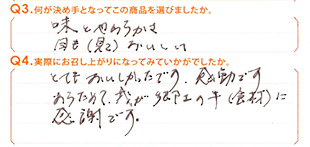 Q3.何が決め手となってこの商品を選びましたか。
味とやわらかさ
目も(見て)おいしい
Q4.実際にお召し上がりになってみていかがでしたか。
とてもおいしかったです。感動です
あらためて、我が郷土の牛(食材)に
感謝です。